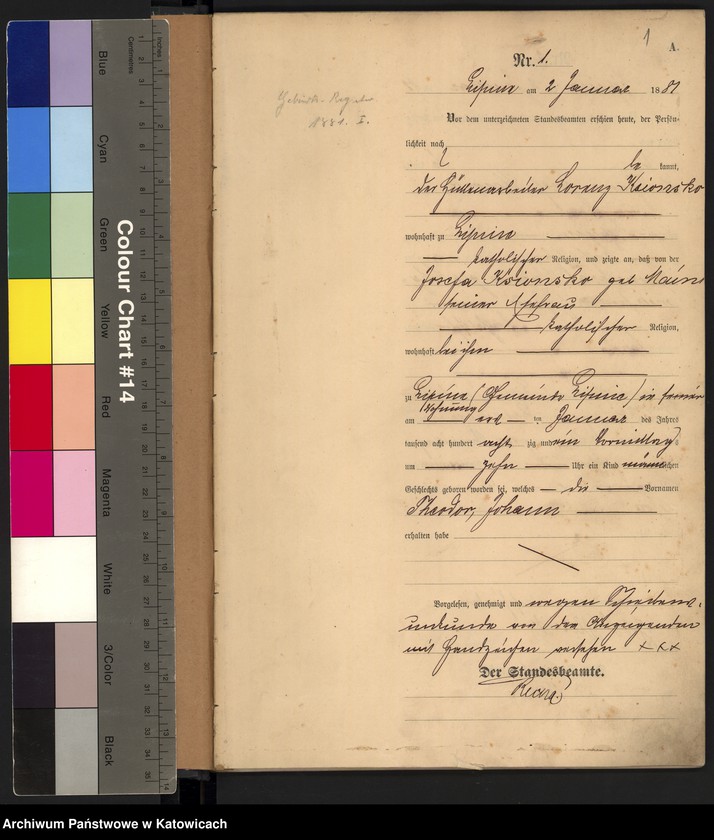 Blue
Cyan
Green
Yellow
Red
Magenta
White
3/Color
Black
Colour Chart #14
Centimetres
Inches
Geburts-Register
1881. I.
1
A.
Nr. 1.
Lipine am 2 Januar 1881
Vor dem unterzeichneten Standesbeamten erschien heute, der Persön-
lichkeit nach
be kannt,
der Hüttenarbeiter Lorenz Ksionsko
wohnhaft zu Lipine
katholischer Religion, und zeigte an, daß von der
Josefa Ksionsko geb
seiner Ehefrau
katholischer Religion,
wohnhaft bei ihm
zu Lipine (Gemeinde Lipine) in seiner
Wohnung
am ersten Januar des Jahres
tausend acht hundert acht zig und ein Vormittags
um zehn Uhr ein Kind männlichen
Geschlechts geboren worden sei, welches die Vornamen
Theodor, Johann
erhalten habe
Vorgelesen, genehmigt und wegen Schreibens-
unkunde von dem
mit Handzeichen versehen + + +
Der Standesbeamte.
Archiwum Państwowe w Katowicach